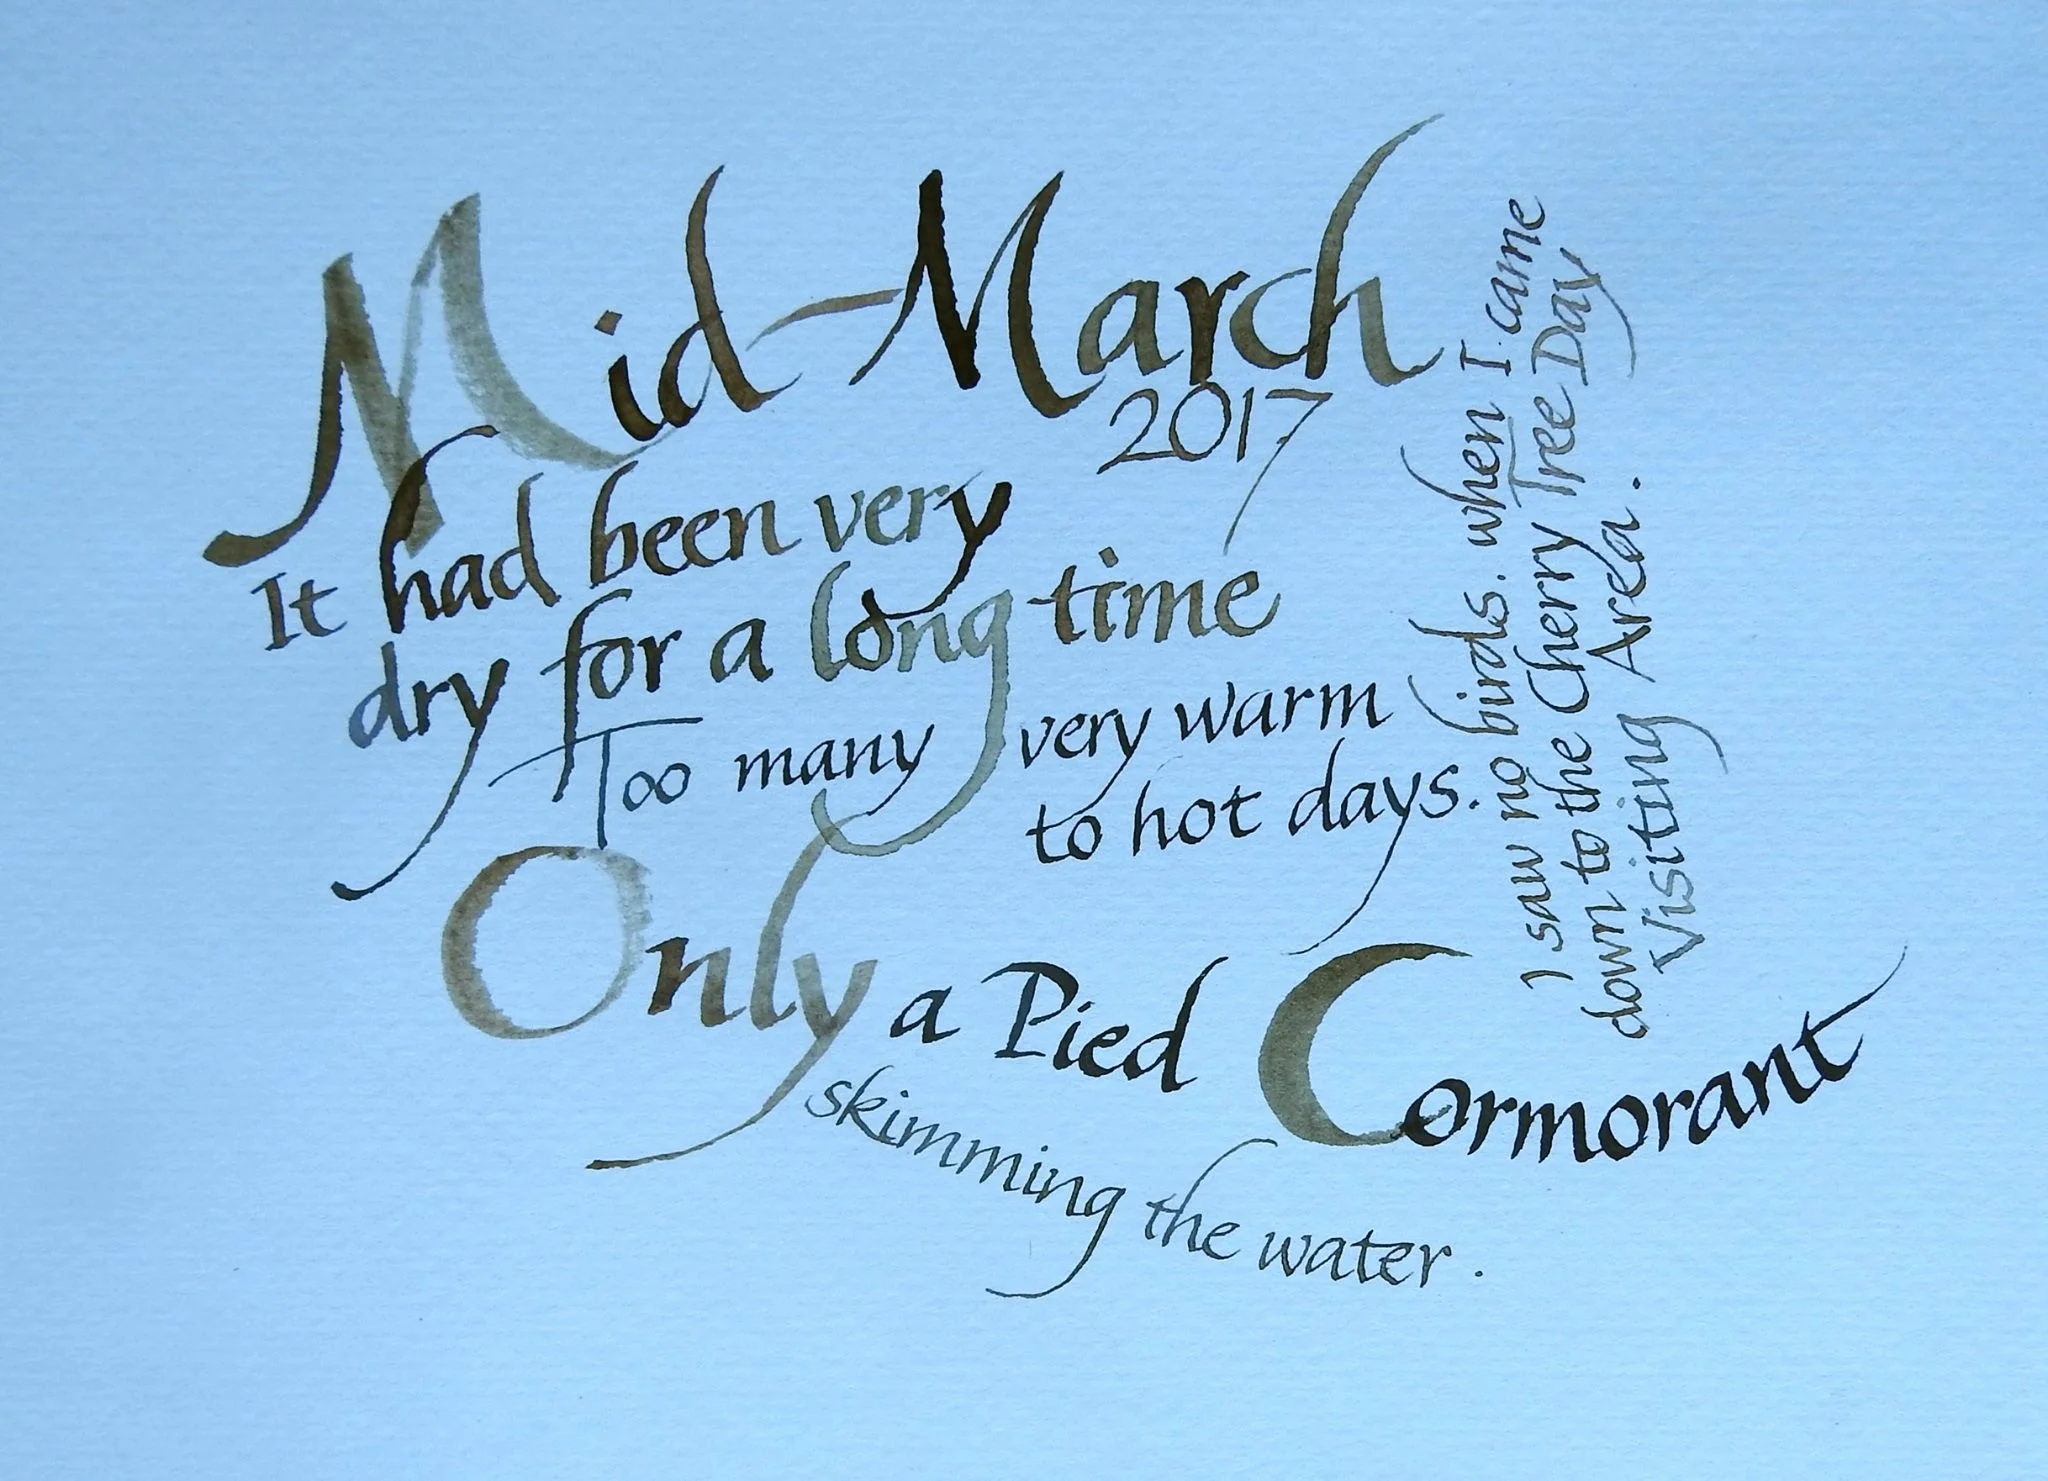 Mid-March
2017
It had been very
dry for a long time
Too many very warm
to hot days.
I saw no birds. when I came
down to the Cherry Tree Day
Visiting Area.
Only a Pied Cormorant
skimming the water.